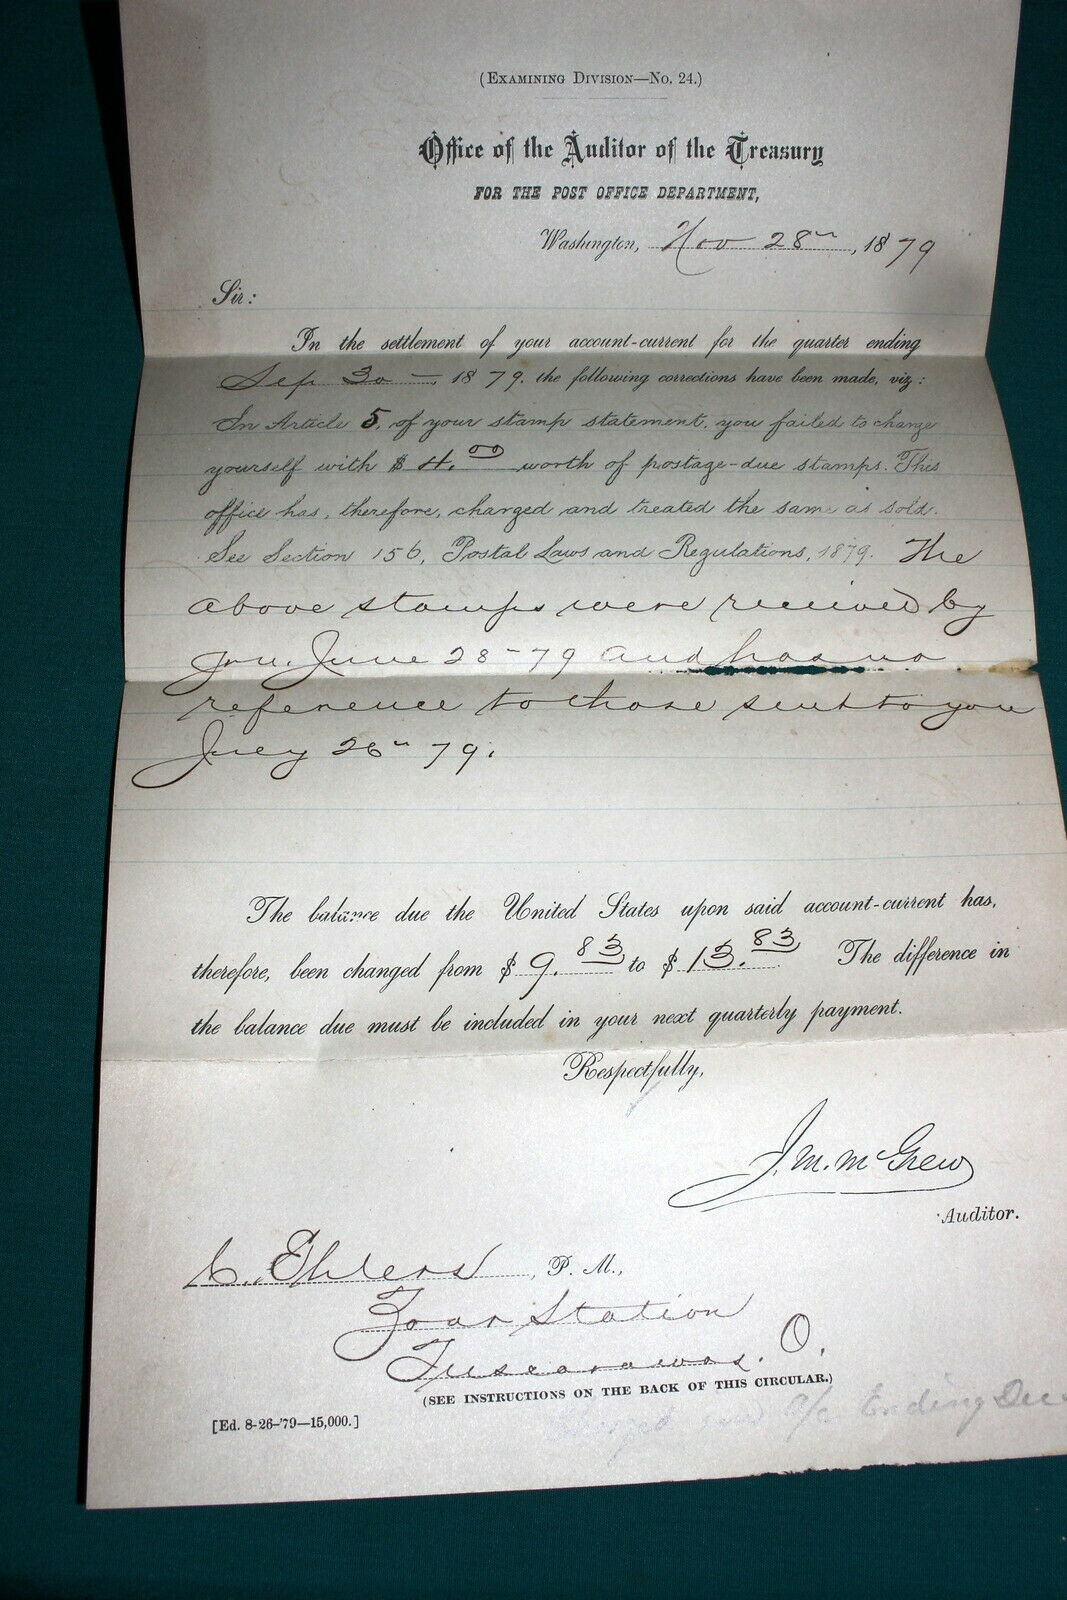 (EXAMINING DIVISION—No. 24.)
Office of the Auditor of the Treasury
FOR THE POST OFFICE DEPARTMENT,
Washington, Nov 28th, 1879
Sir:
In the settlement of your account-current for the quarter ending
Sep 30 — 1879. the following corrections have been made, viz:
In Article 5, of your stamp statement, you failed to charge
yourself with $ 4.00 worth of postage-due stamps. This
office has, therefore, charged and treated the same as sold.
See Section 156, Postal Laws and Regulations, 1879. The
above stamps were received by
you June 28-79 and has no
reference to those sent to you
July 26th 79.
The balance due the United States upon said account-current has,
therefore, been changed from $ 9.83 to $ 13.83 The difference in
the balance due must be included in your next quarterly payment.
Respectfully,
J. M. McGrew
Auditor.
C. Ehlers, P. M.,
Zoar Station
Tuscarawas. O.
(SEE INSTRUCTIONS ON THE BACK OF THIS CIRCULAR.)
[Ed. 8-26-'79—15,000.]
a/c Ending Dec